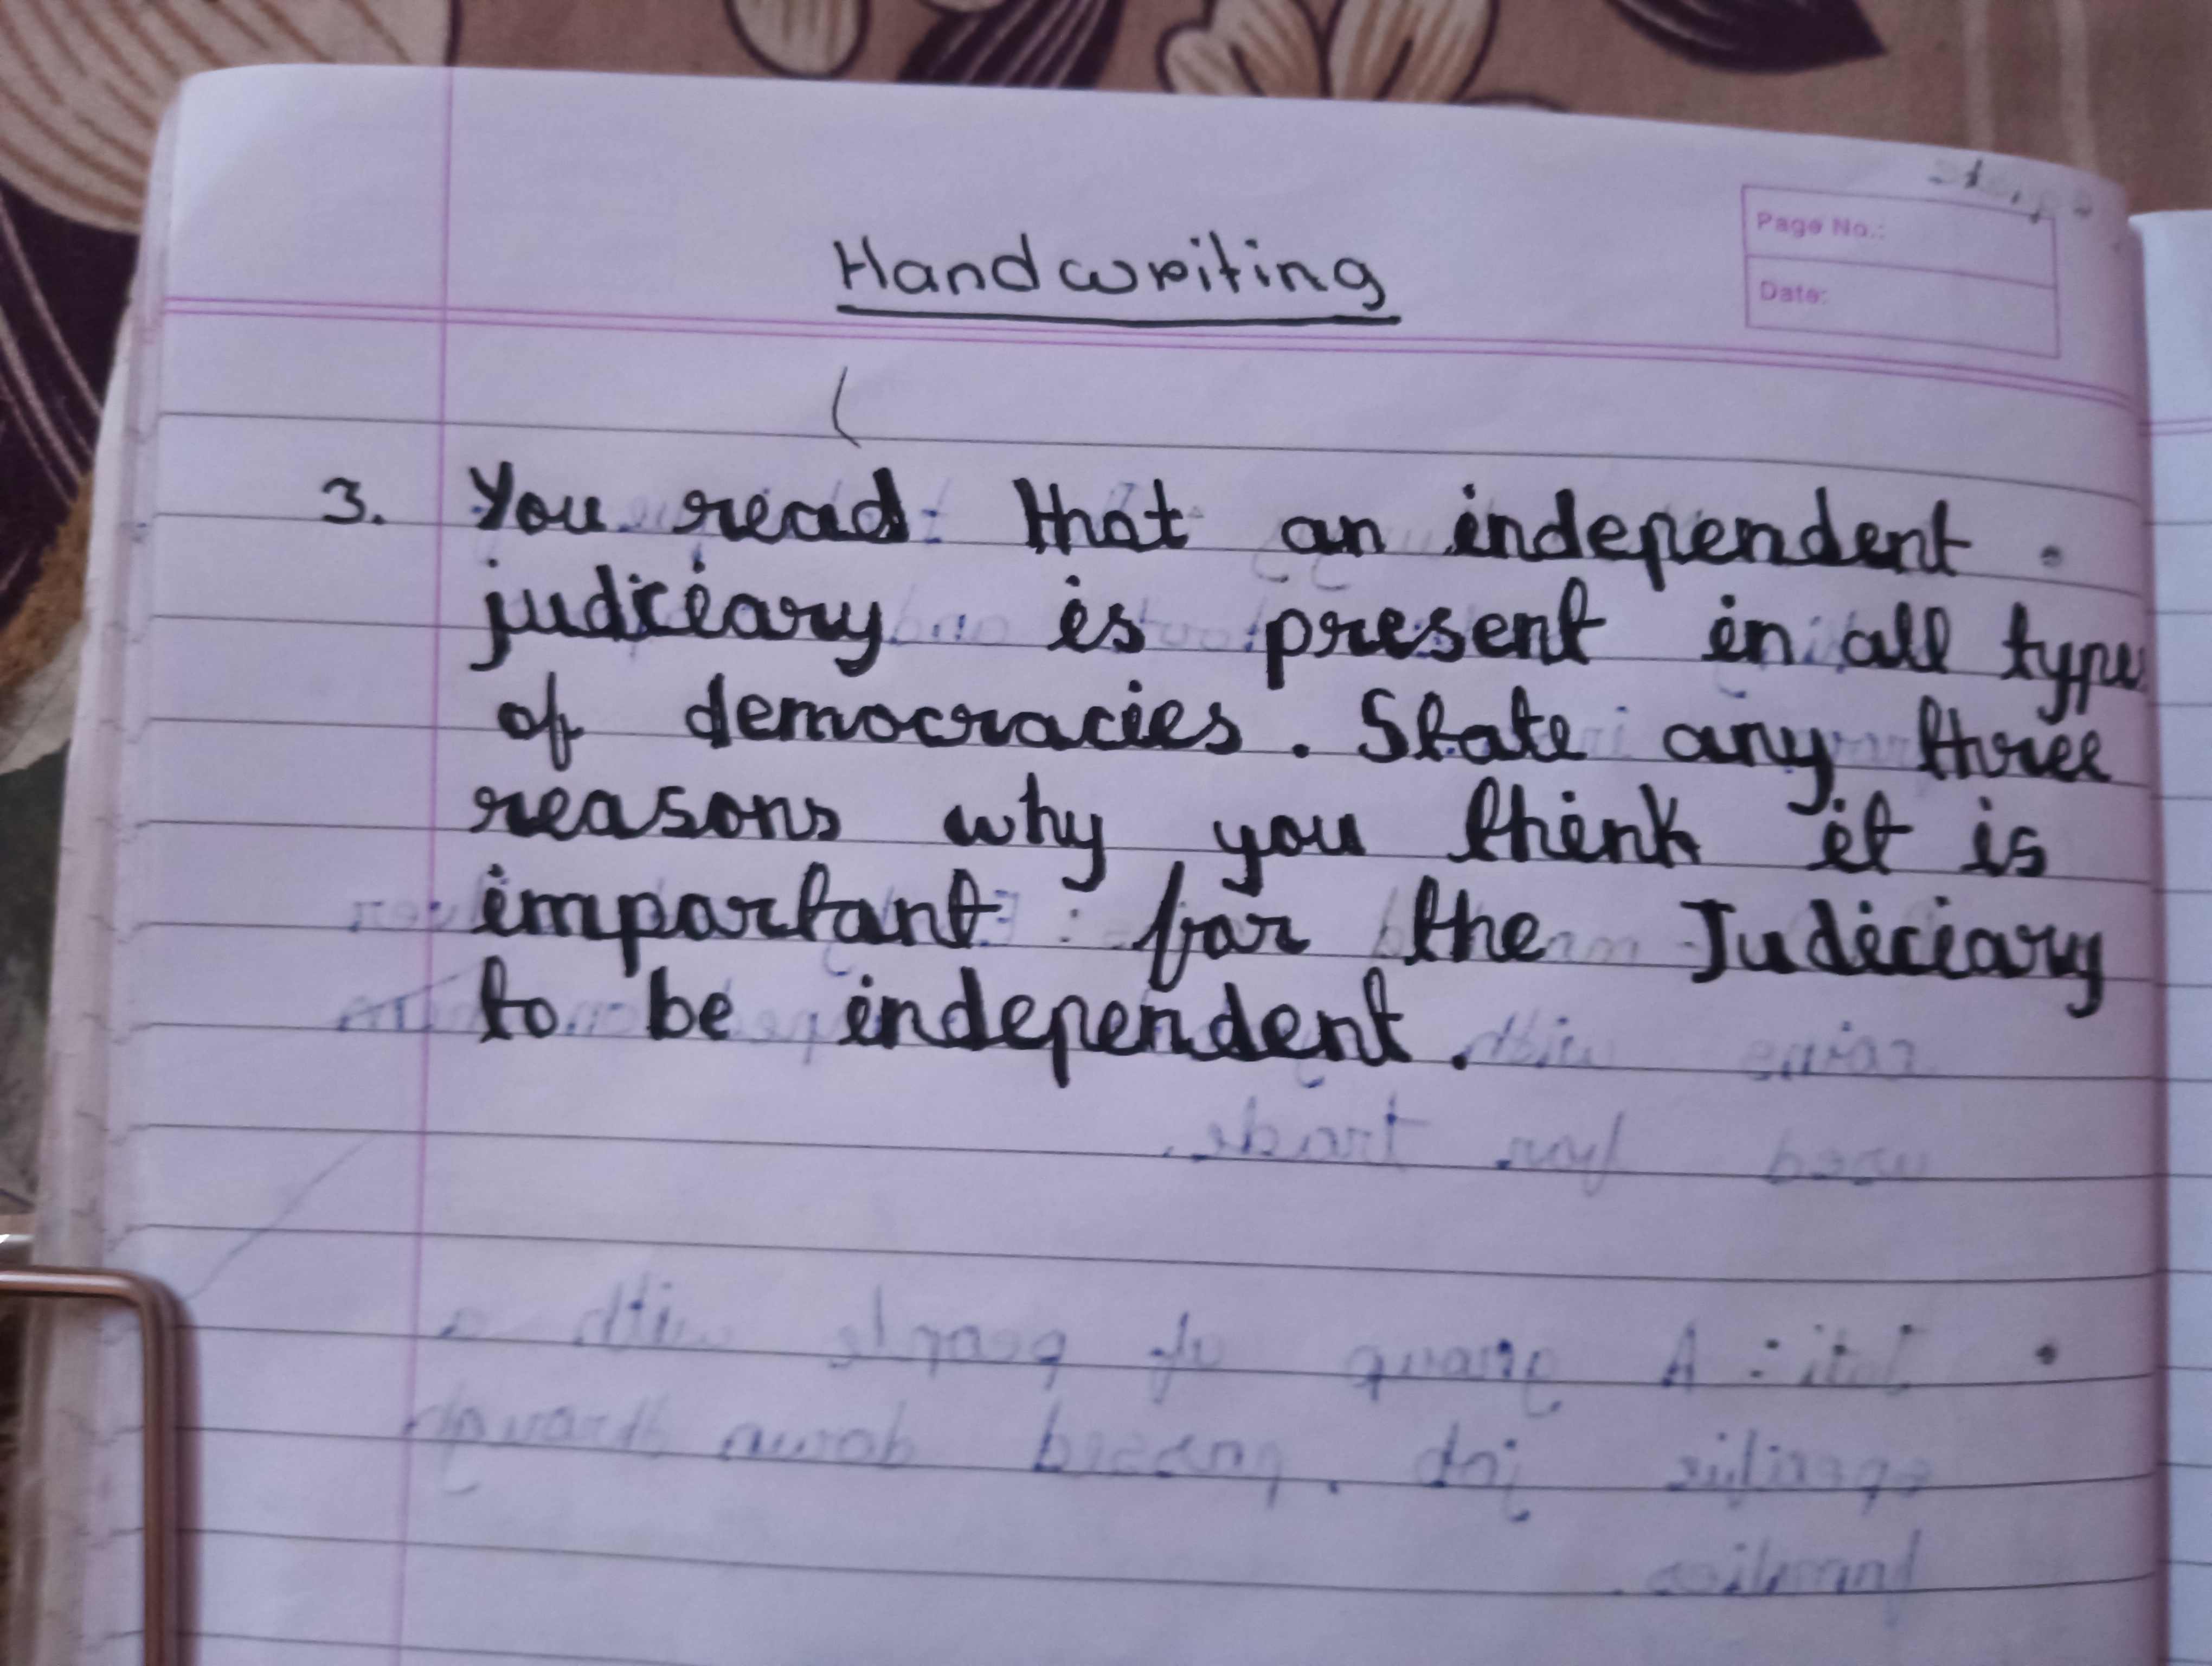 Handwriting
Page No.:
Date:
3. You read that an independent
judiciary is present in all type
of democracies. State any three
reasons why you think it is
important for the Judiciary
to be independent.